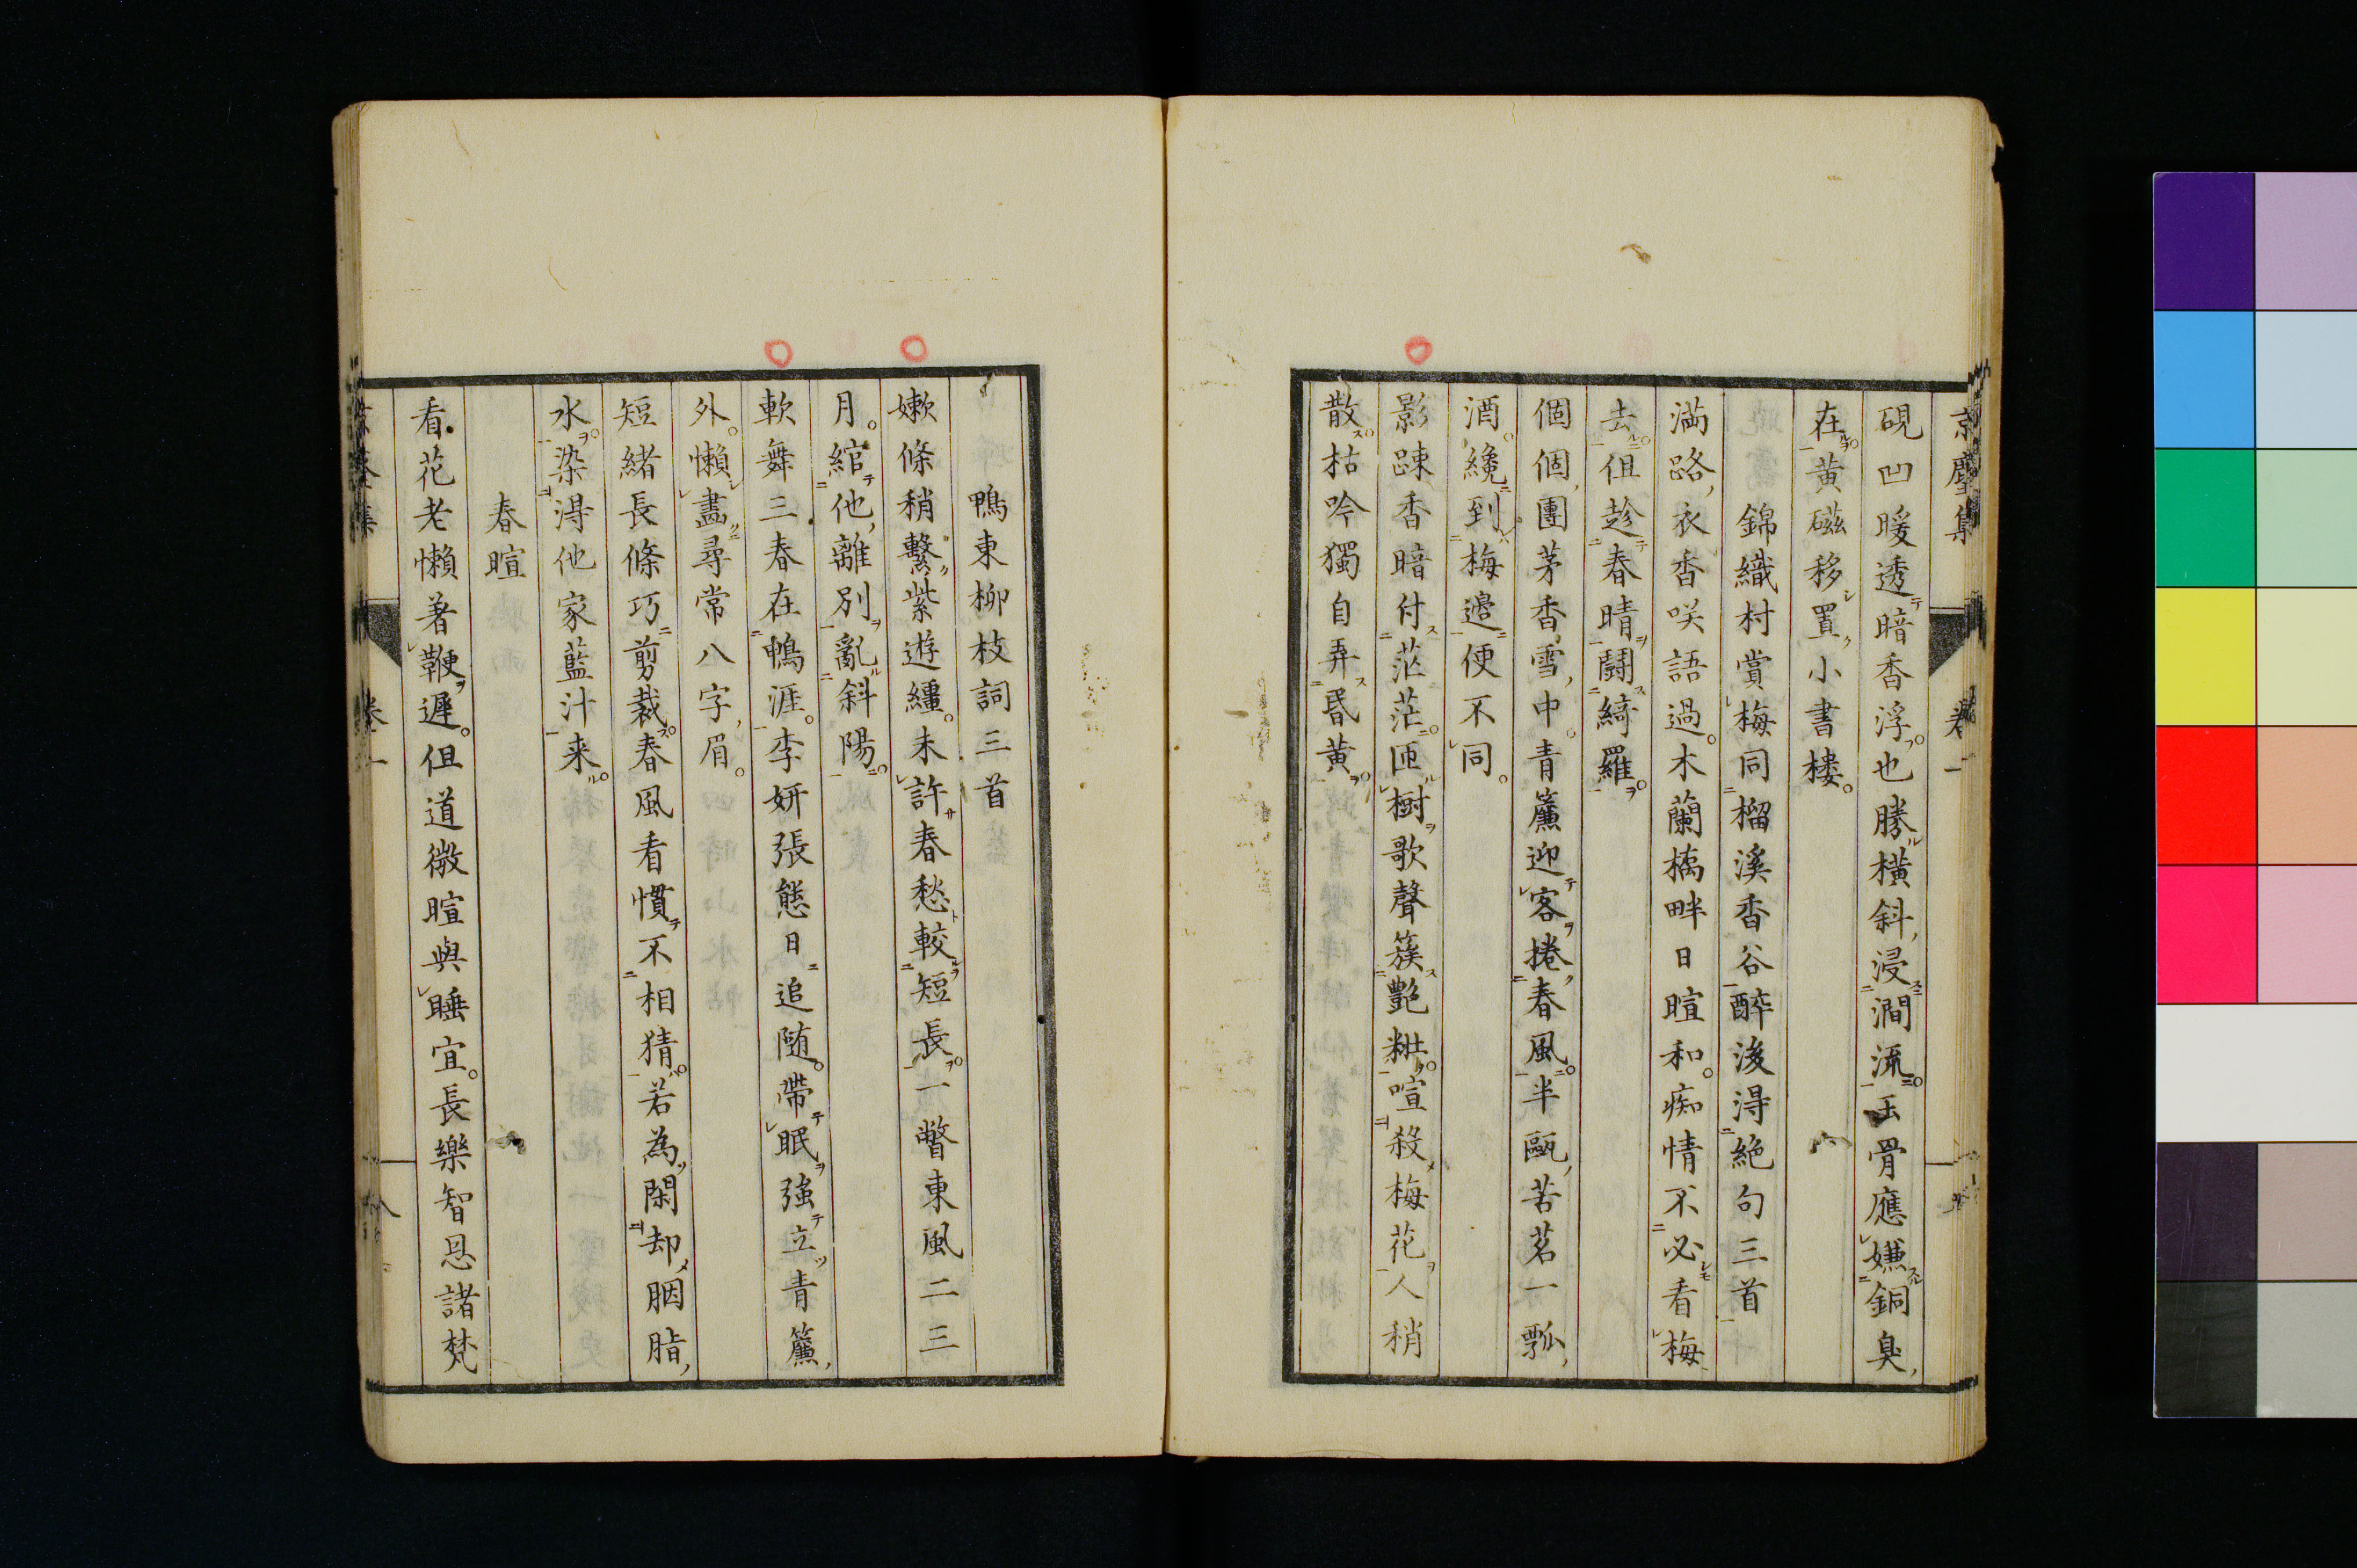 京塵集 卷一
硯凹暖透暗香浮也勝橫斜浸澗流玉骨應嫌銅臭
在黄磁移置小書樓
錦織村賞梅同榴溪香谷醉後得絶句三首
満路衣香咲語過木蘭橋畔日暄和痴情不必看梅
去但趁春晴鬪綺羅
個個團茅香雪中青簾迎客捲春風半甌苦茗一瓢
酒纔到梅邉便不同
影踈香暗付茫茫匝樹歌聲簇艶粧喧殺梅花人稍
散枯吟獨自弄昏黄
鴨東柳枝詞三首
嫩條稍繋紫遊繮未許春愁較短長一瞥東風二三
月綰他離別亂斜陽
軟舞三春在鴨涯李妍張態日追随帶眠強立青簾
外懶畫尋常八字眉
短緒長條巧剪裁春風看慣不相猜若為閑却胭脂
水染得他家藍汁来
春暄
看花老懶著鞭遲但道微暄與睡宜長樂智恩諸梵
卷一 八